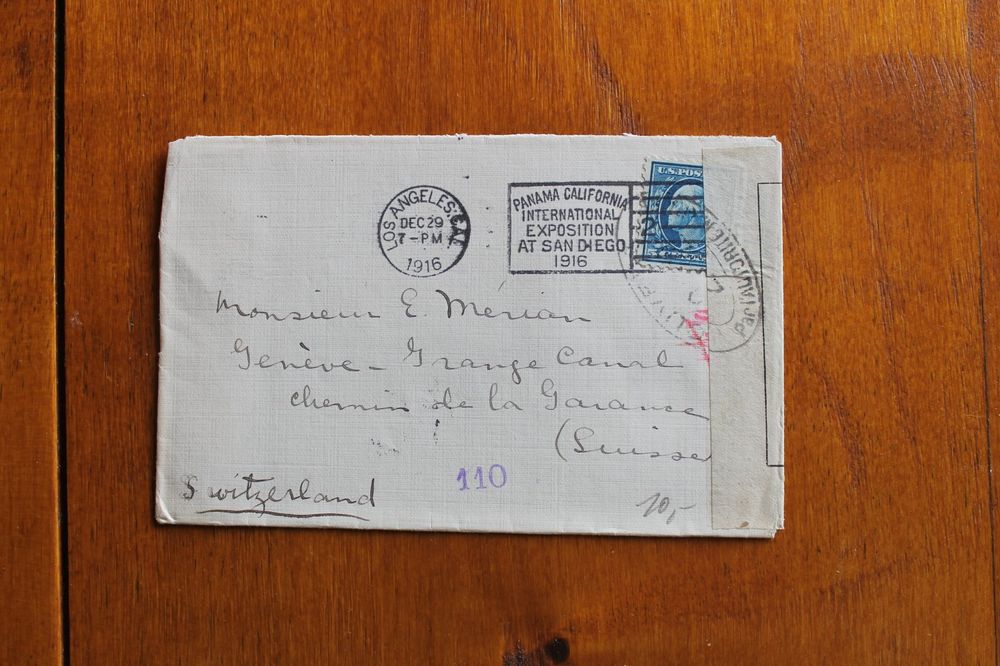 LOS ANGELES, CAL.
DEC 29
7-PM
1916
PANAMA CALIFORNIA
INTERNATIONAL
EXPOSITION
AT SAN DIEGO
1916
U.S. POS
2
Monsieur E. Mérian
Genève - Grange Canal
chemin de la Garance
(Suisse
Switzerland
110
10,-
PAR L'AUTORITÉ M